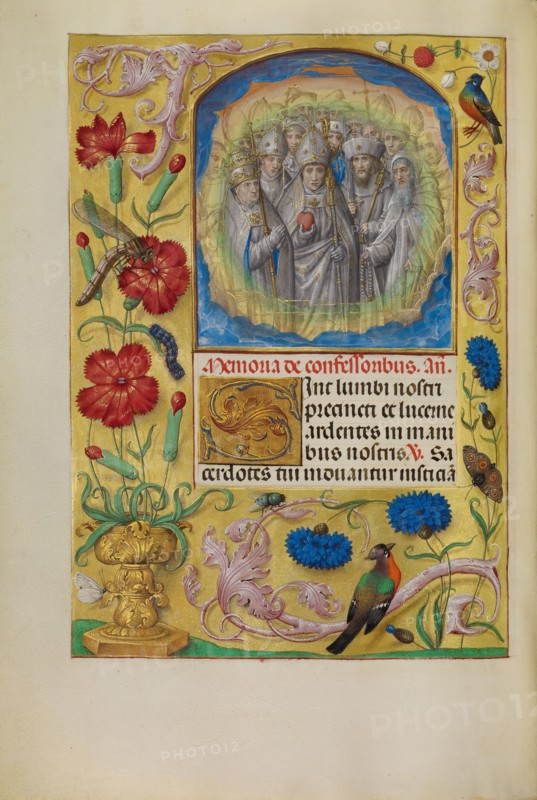 Memoria de confessoribus. An̄.
Sint lumbi nostri
precincti et lucerne
ardentes in mani
bus nostris. V. Sa
cerdotes tui induantur insticiā
PHOTO12
PHOTO12
PHOTO12